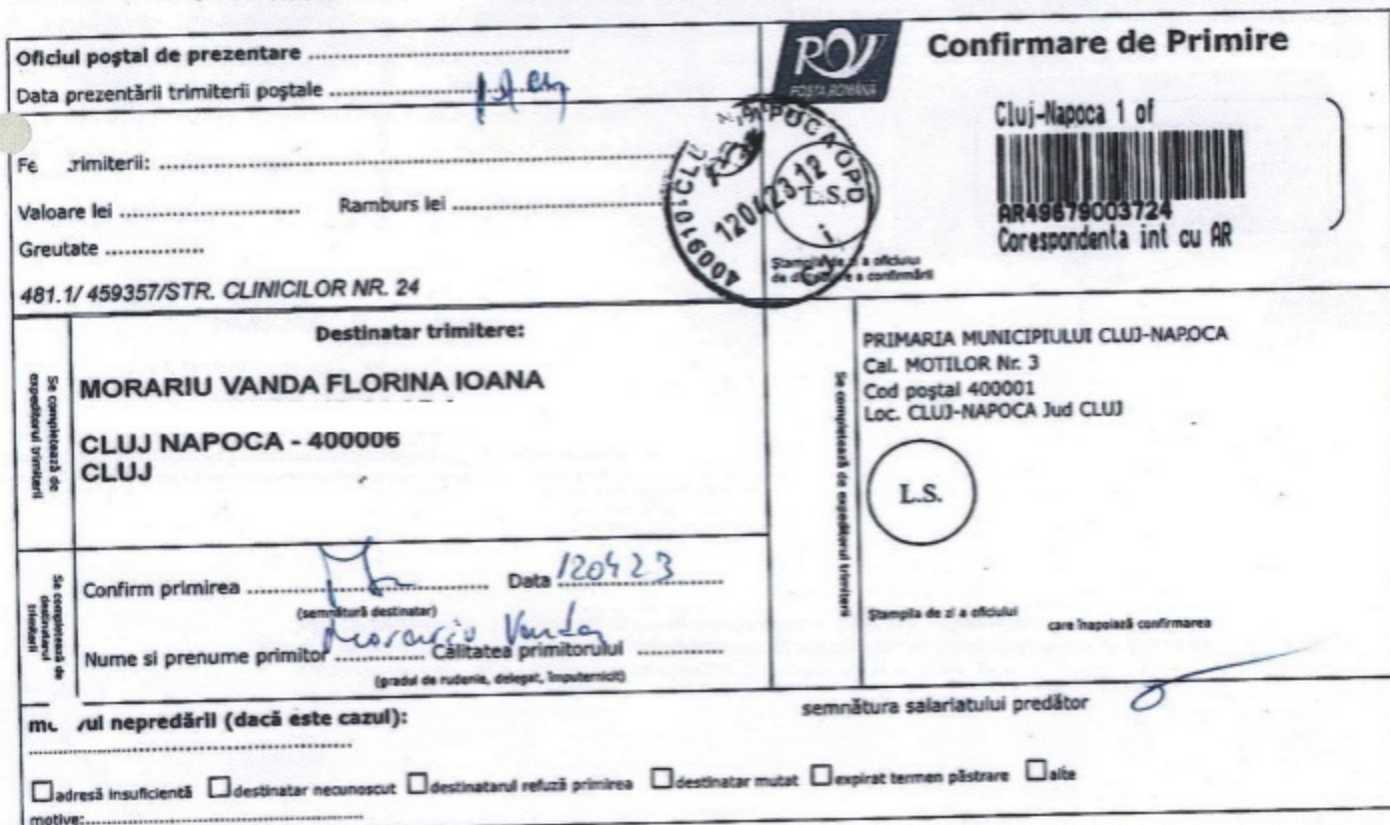 Oficiul poştal de prezentare ..............................
Data prezentării trimiterii poştale ..............................
POSTA ROMÂNĂ
Confirmare de Primire
Cluj-Napoca 1 of
AR49679003724
Corespondenta int cu AR
Fe rimiterii: ..............................
Valoare lei .................... Ramburs lei ..............................
Greutate ...............
481.1/ 459357/STR. CLINICILOR NR. 24
400910-CLUJ NAPOCA OPD
120423-12
L.S.
Ştampila de zi a oficiului
de a confirmării
Se completează de
expeditorul trimiterii
Destinatar trimitere:
MORARIU VANDA FLORINA IOANA
CLUJ NAPOCA - 400006
CLUJ
Se completează de expeditorul trimiterii
PRIMARIA MUNICIPIULUI CLUJ-NAPOCA
Cal. MOTILOR Nr. 3
Cod poştal 400001
Loc. CLUJ-NAPOCA Jud CLUJ
L.S.
Ştampila de zi a oficiului
care înapoiază confirmarea
Se completează de
destinatarul
trimiterii
Confirm primirea .............................. Data 120423
(semnătură destinatar)
Morariu Vanda
Nume si prenume primitor ............... Calitatea primitorului ...............
(gradul de rudenie, delegat, împuternicit)
semnătura salariatului predător
mo vul nepredării (dacă este cazul):
☐ adresă insuficientă ☐ destinatar necunoscut ☐ destinatarul refuză primirea ☐ destinatar mutat ☐ expirat termen păstrare ☐ alte
motive:..............................